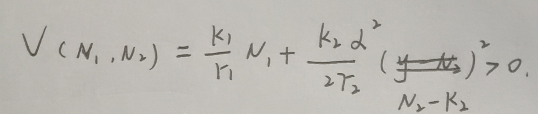 V(N₁,N₂) = K₁/r₁ N₁ + K₂α²/2r₂ (y-N₂)² > 0.
N₂-K₂